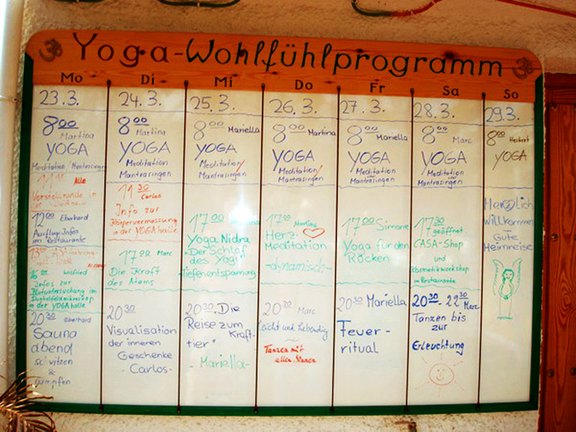 Yoga-Wohlfühlprogramm
Mo Di Mi Do Fr Sa So
23.3.
8 00 Martina
YOGA
Meditation Mantrasingen
Alle
Vorstellrunde
Eberhard
Ausflugs-Infos
im Restaurante
Winfried
Infos zur
in der YOGAhalle
20 30 Eberhard
Sauna
abend
schwitzen
&
dampfen
24.3.
8 00
Martina
YOGA
Meditation
Mantrasingen
11 30 Carlos
Info zur
Körpervermessung
in der YOGAhalle
17 00 Marc
Die Kraft
des Atems
20 30
Visualisation
der inneren
Geschenke
- Carlos -
25.3.
8 00 Mariella
YOGA
Meditation
Mantrasingen
17 00
Yoga Nidra
-Der Schlaf
des Yogi
Tiefenentspannung
20 30 „Die
Reise zum
Kraft-
tier"
- Mariella -
26.3.
8 00 Martina
YOGA
Meditation
Mantrasingen
17 30 Martina
Herz-
Meditation
-dynamisch-
20 30 Marc
Leicht und Lebendig
Tanzen mit
allen Sinnen
27.3.
8 00 Mariella
YOGA
Meditation
Mantrasingen
17 00 Simone
Yoga für den
Rücken
20 30 Mariella
Feuer-
ritual
28.3.
8 00 Marc
YOGA
Meditation
Mantrasingen
17 30
geöffnet
CASA-Shop
und
Kosmetikworkshop
im Restaurante
20 30 - 22 30 Marc
Tanzen bis
zur
Erleuchtung
29.3.
8 00
YOGA
Herzlich
willkommen
Gute
Heimreise